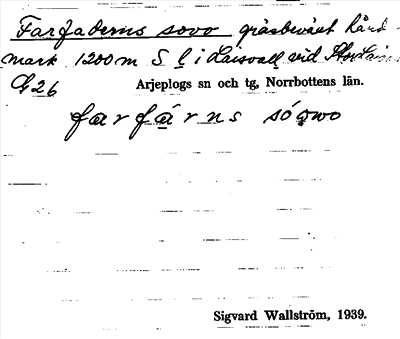 Farfaderns sovo gräsbeväxt hård-
mark 1200 m S l i Laisvall vid Storlais
G 26 Arjeplogs sn och tg, Norrbottens län.
farfárns
Sigvard Wallström, 1939.